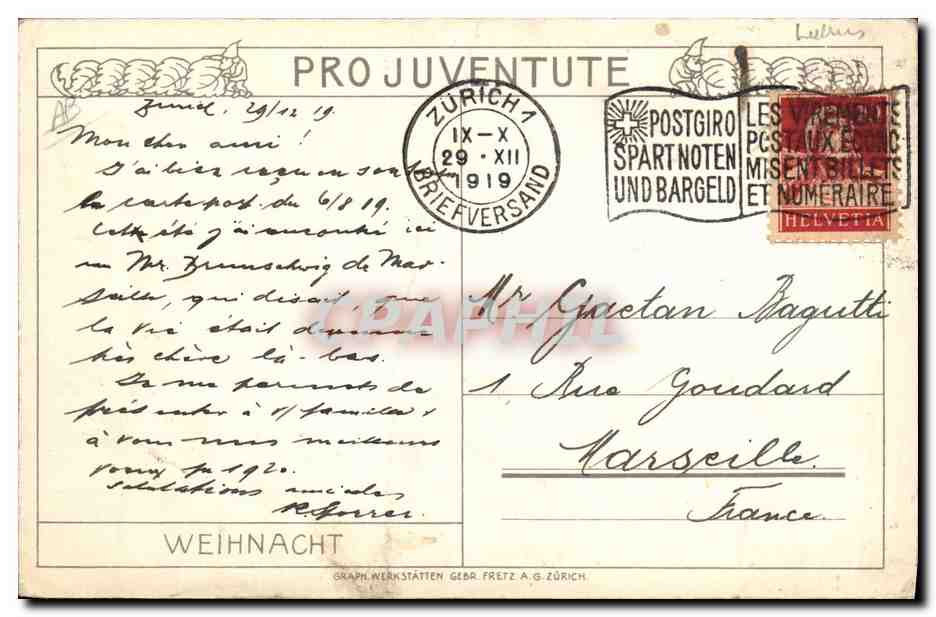 PRO JUVENTUTE
AB
Zurich, 29/12 19.
Mon cher ami!
J'ai bien reçu en son temps
la carte post. du 6/8 19.
Cet été j'ai rencontré ici
un Mr. Brunschwig de Mar-
seille, qui disait que
la vie était devenue
très chère là-bas.
Je me permets de
présenter à v/ famille &
à vous mes meilleurs
voeux pr 1920.
Salutations amicales
WEIHNACHT
ZÜRICH 1
IX-X
29·XII
1919
BRIEFVERSAND
POSTGIRO
SPART NOTEN
UND BARGELD
LES VIREMENTS
POSTAUX ÉCONO-
MISENT BILLETS
ET NUMÉRAIRE
HELVETIA
Mr Gaetan Bagutti
1 Rue Goudard
Marseille.
France.
CPAPHIL
GRAPH. WERKSTÄTTEN GEBR. FRETZ A.G. ZÜRICH.